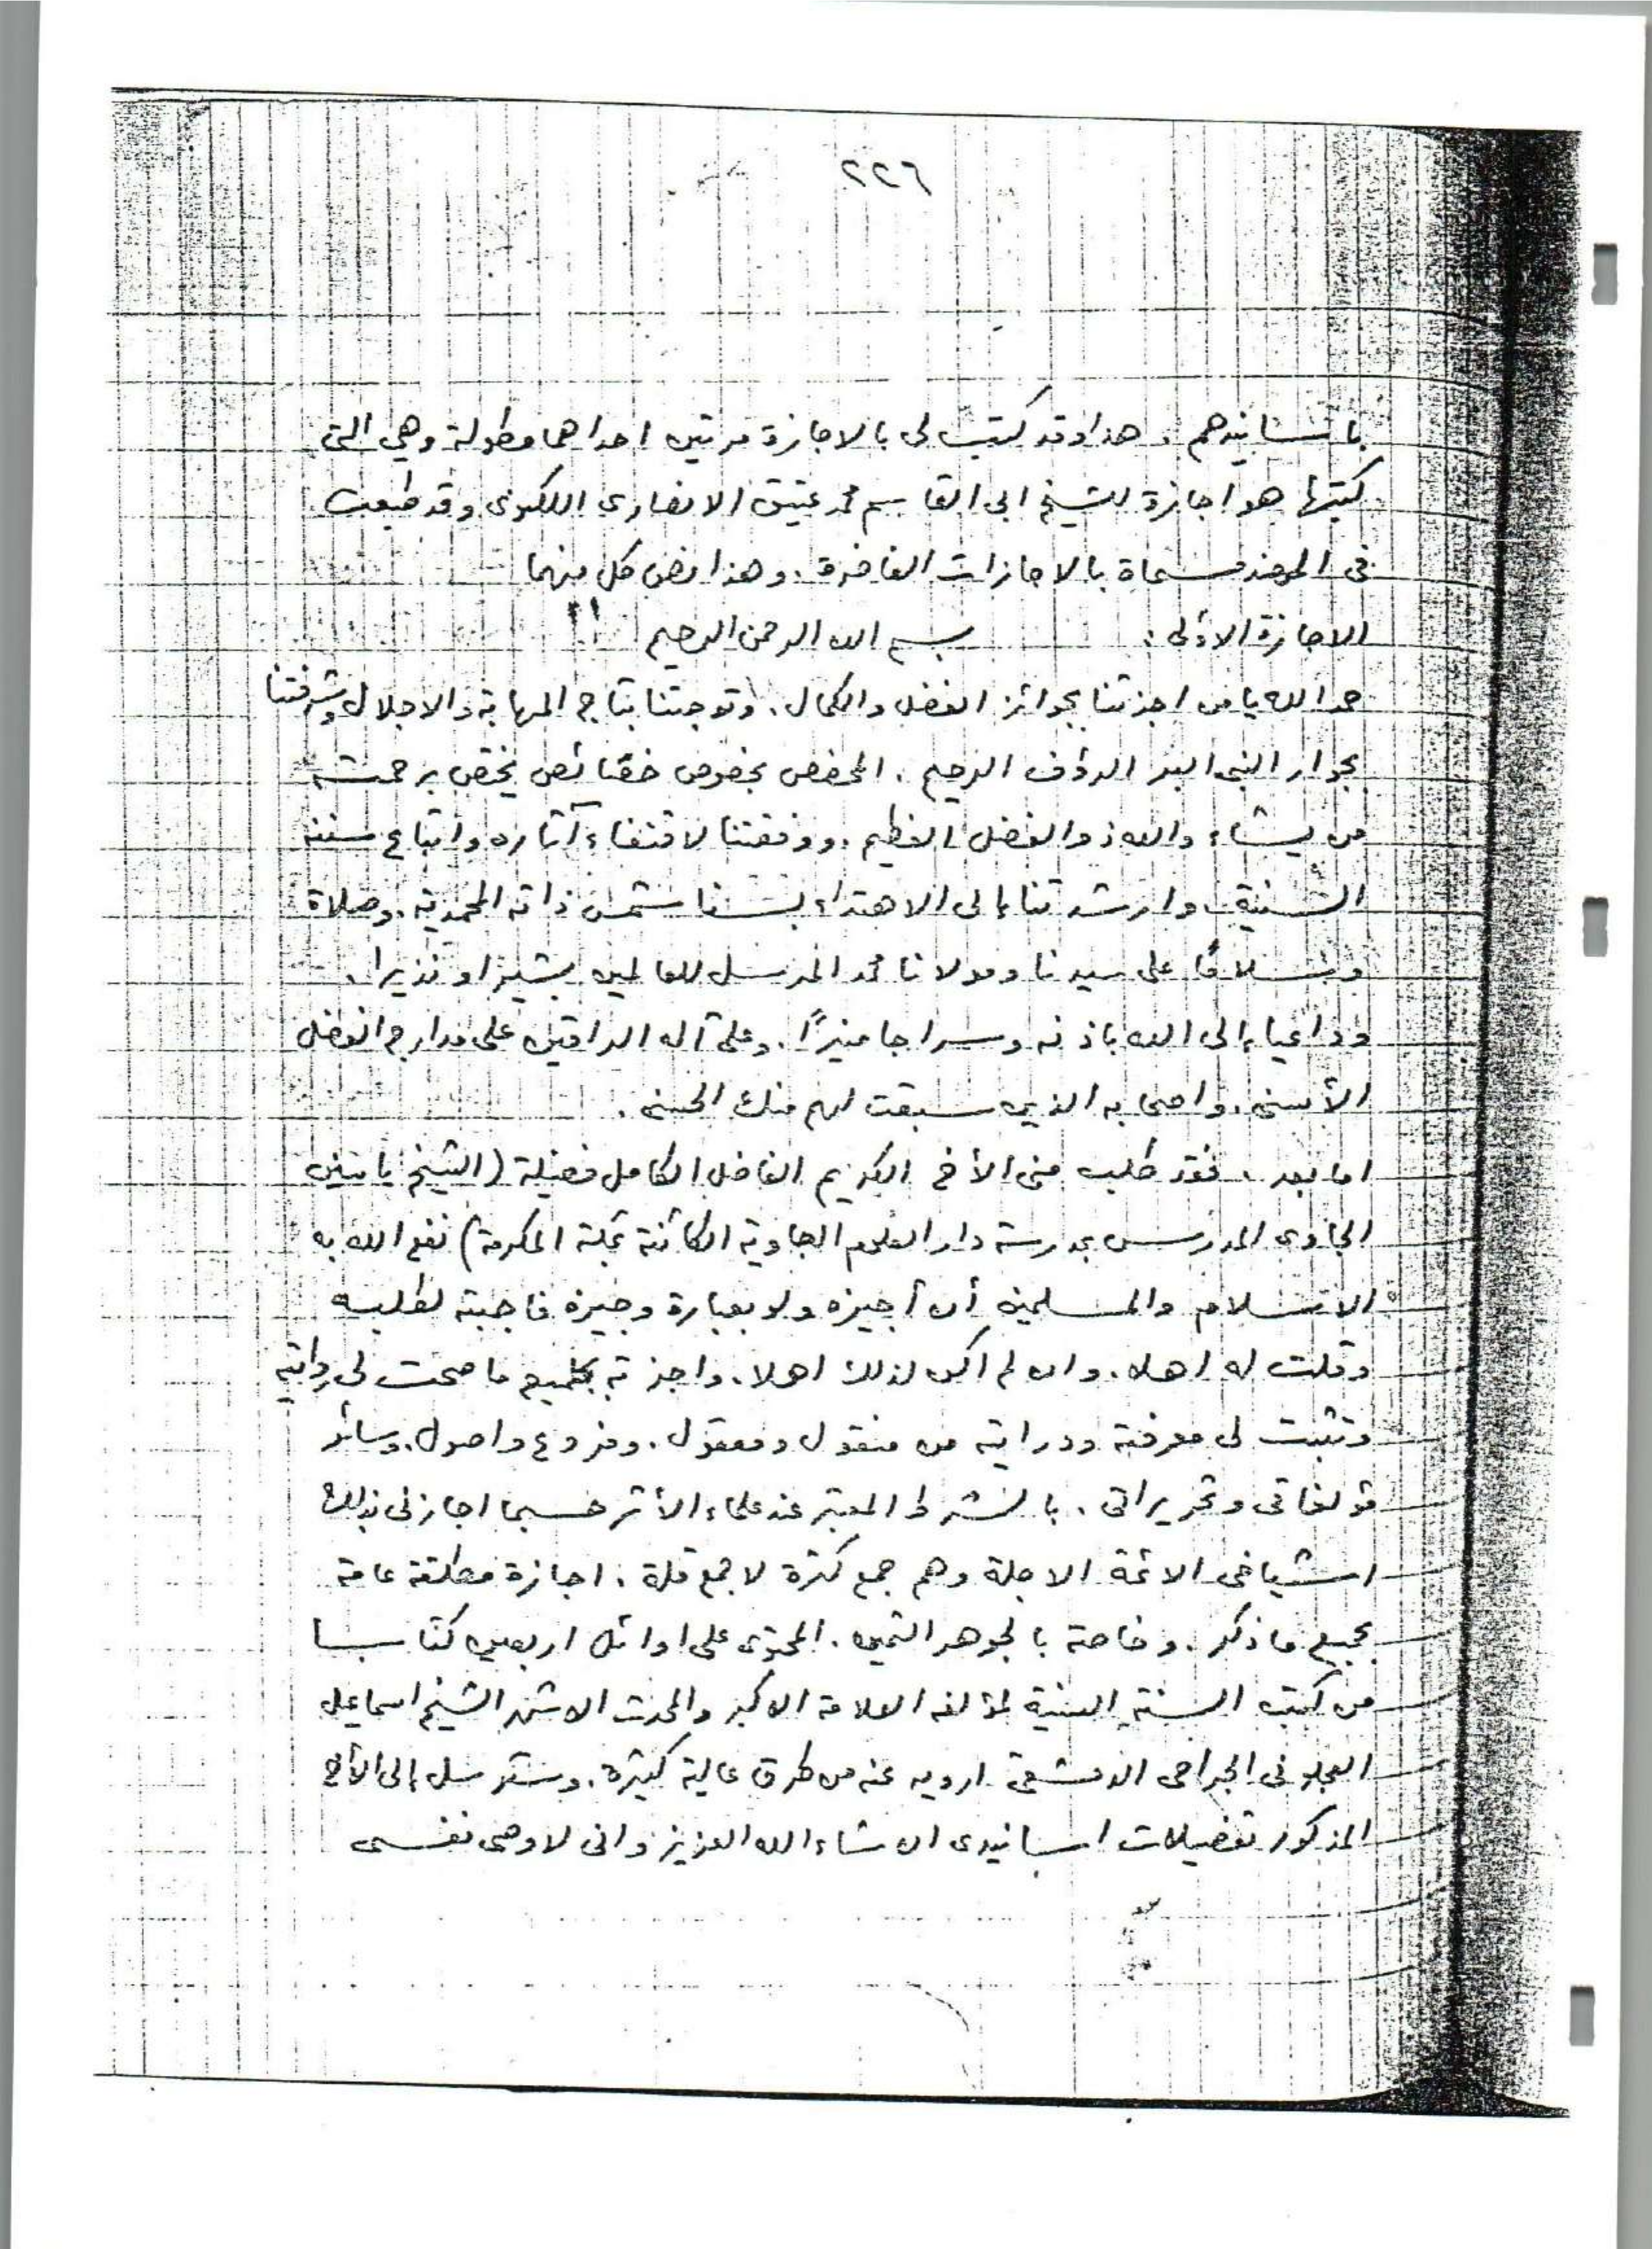 ٢٢٦
باسانيدهم . هذا وقد كتب لى بالاجازة مرتين احداهما مطولة وهي التى
كتبها هو اجازة للشيخ ابى القاسم محمد عتيق الانصارى اللكنوى وقد طبعت
فى الهند مسماة بالاجازات الفاخرة . وهذا نص كل منهما
الاجازة الاولى : بسم الله الرحمن الرحيم
حمدا لله يا من اجزتنا بجوائز الفضل والكمال . وتوجتنا بتاج المهابة والاجلال وشرفتنا
بجوار النبى البر الرؤف الرحيم . المخصص بخصوص خصائص يختص برحمته
من يشاء والله ذو الفضل العظيم . ووفقتنا لاقتفاء آثاره واتباع سننه
السنية وارشدتنا إلى الاهتداء بسنا شمس ذاته المحمدية . وصلاة
وسلامًا على سيدنا ومولانا محمد المرسل للعالمين بشيرا ونذيرا .
وداعيا إلى الله باذنه وسراجا منيرًا . وعلى آله الراقين على مدارج الفضل
الأسنى . واصحابه الذين سبقت لهم منك الحسنى .
اما بعد . فقد طلب منى الأخ الكريم الفاضل الكامل فضيلة (الشيخ ياسين
الجاوى المدرس بمدرسة دار العلوم الجاوية الكائنة بمكة المكرمة) نفع الله به
الاسلام والمسلمين أن أجيزه ولو بعبارة وجيزة فاجبته لطلبه
وقلت له اهلا . وان لم اكن لذلك اهلا . واجزته بجميع ما صحت لى روايته
وثبتت لى معرفته ودرايته من منقول ومعقول . وفروع واصول . وسائر
مؤلفاتى وتحريراتى . بالشرط المعتبر عند علماء الأثر حسبما اجازنى بذلك
اشياخى الائمة الاجلة وهم جمع كثرة لا جمع قلة . اجازة مطلقة عامة
بجميع ما ذكر . وخاصة بالجوهر الثمين . المحتوى على اوائل اربعين كتابا
من كتب السنة السنية لمؤلفه العلامة الاكبر والمحدث الاشهر الشيخ اسماعيل
العجلونى الجراحى الدمشقى ارويه عنه من طرق عالية كثيرة . وسترسل إلى الأخ
المذكور تفصيلات اسانيدى ان شاء الله العزيز وانى لاوصى نفسى